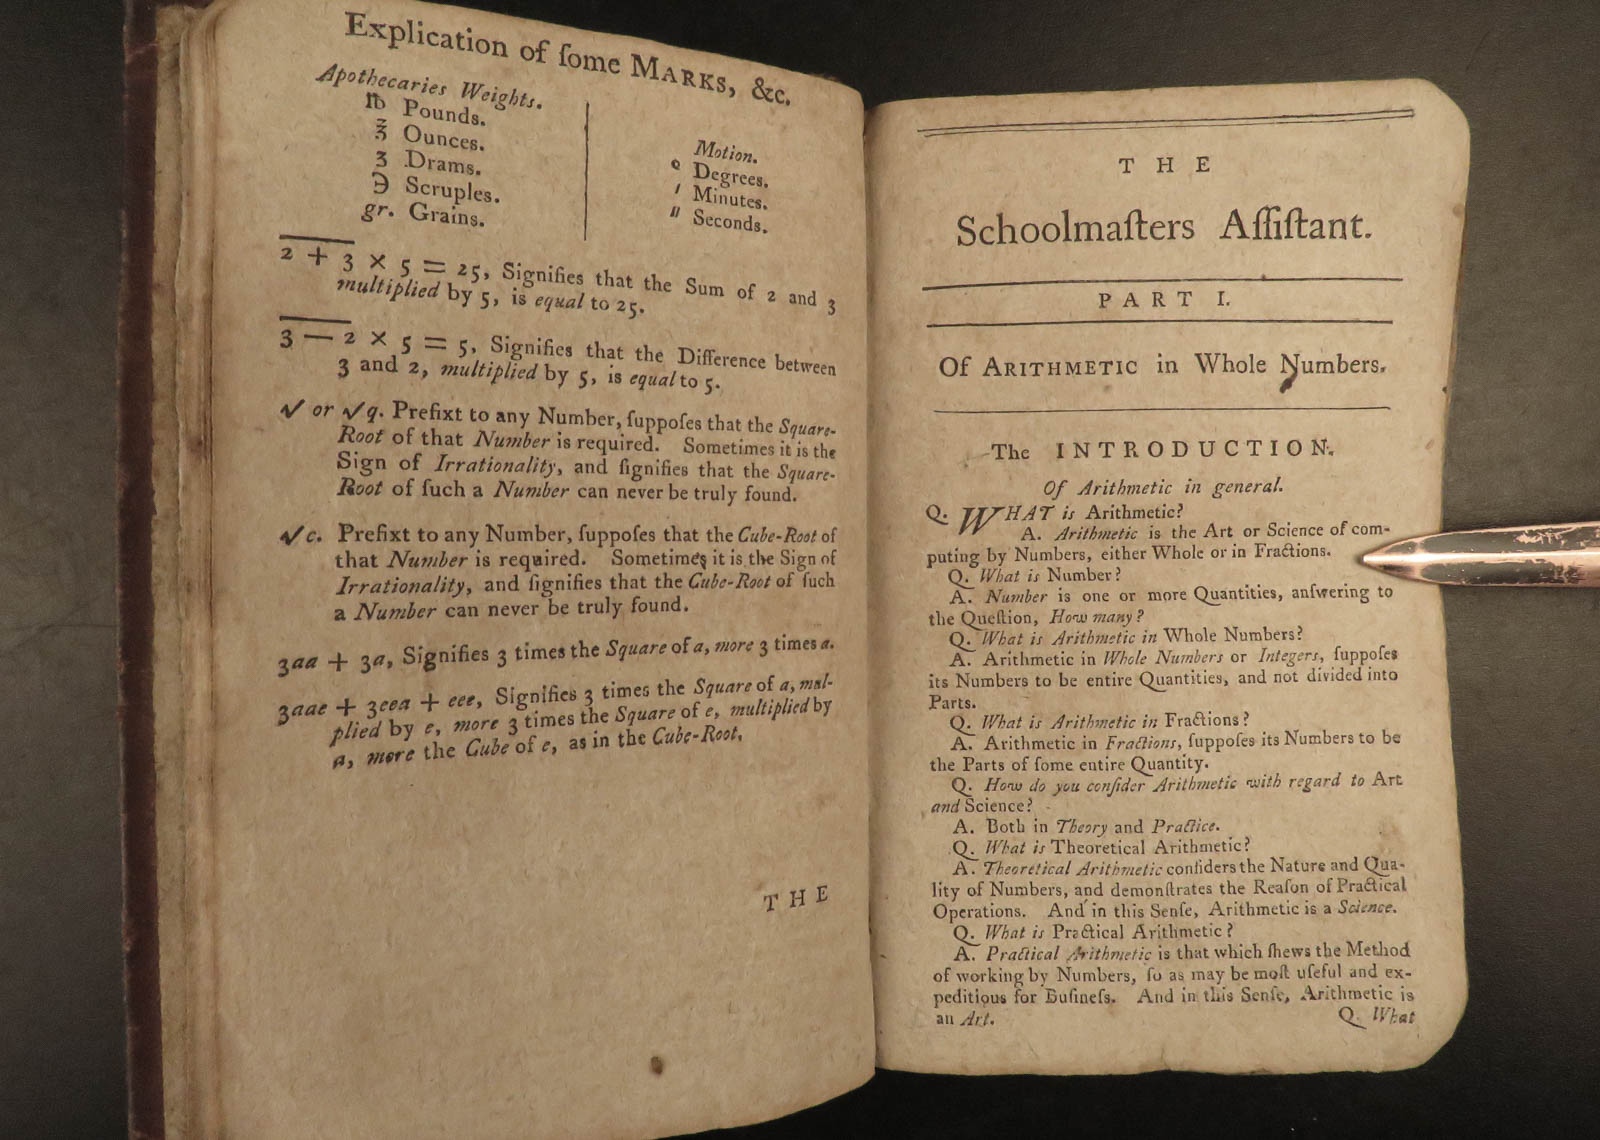 Explication of ſome MARKS, &c.
Apothecaries Weights.
℔ Pounds.
℥ Ounces.
ʒ Drams.
℈ Scruples.
gr. Grains.
Motion.
° Degrees.
′ Minutes.
″ Seconds.
2 + 3 × 5 = 25, Signifies that the Sum of 2 and 3
multiplied by 5, is equal to 25.
3 — 2 × 5 = 5, Signifies that the Difference between
3 and 2, multiplied by 5, is equal to 5.
√ or √q. Prefixt to any Number, ſuppoſes that the Square-
Root of that Number is required. Sometimes it is the
Sign of Irrationality, and ſignifies that the Square-
Root of ſuch a Number can never be truly found.
√c. Prefixt to any Number, ſuppoſes that the Cube-Root of
that Number is required. Sometimes it is the Sign of
Irrationality, and ſignifies that the Cube-Root of ſuch
a Number can never be truly found.
3aa + 3a, Signifies 3 times the Square of a, more 3 times a.
3aae + 3eea + eee, Signifies 3 times the Square of a, mul-
plied by e, more 3 times the Square of e, multiplied by
a, more the Cube of e, as in the Cube-Root.
THE
THE
Schoolmaſters Aſſiſtant.
PART I.
Of ARITHMETIC in Whole Numbers.
The INTRODUCTION.
Of Arithmetic in general.
Q. WHAT is Arithmetic?
A. Arithmetic is the Art or Science of com-
puting by Numbers, either Whole or in Fractions.
Q. What is Number?
A. Number is one or more Quantities, anſwering to
the Queſtion, How many?
Q. What is Arithmetic in Whole Numbers?
A. Arithmetic in Whole Numbers or Integers, ſuppoſes
its Numbers to be entire Quantities, and not divided into
Parts.
Q. What is Arithmetic in Fractions?
A. Arithmetic in Fractions, ſuppoſes its Numbers to be
the Parts of ſome entire Quantity.
Q. How do you conſider Arithmetic with regard to Art
and Science?
A. Both in Theory and Practice.
Q. What is Theoretical Arithmetic?
A. Theoretical Arithmetic conſiders the Nature and Qua-
lity of Numbers, and demonſtrates the Reaſon of Practical
Operations. And in this Senſe, Arithmetic is a Science.
Q. What is Practical Arithmetic?
A. Practical Arithmetic is that which ſhews the Method
of working by Numbers, ſo as may be moſt uſeful and ex-
peditious for Buſineſs. And in this Senſe, Arithmetic is
an Art.
Q. What